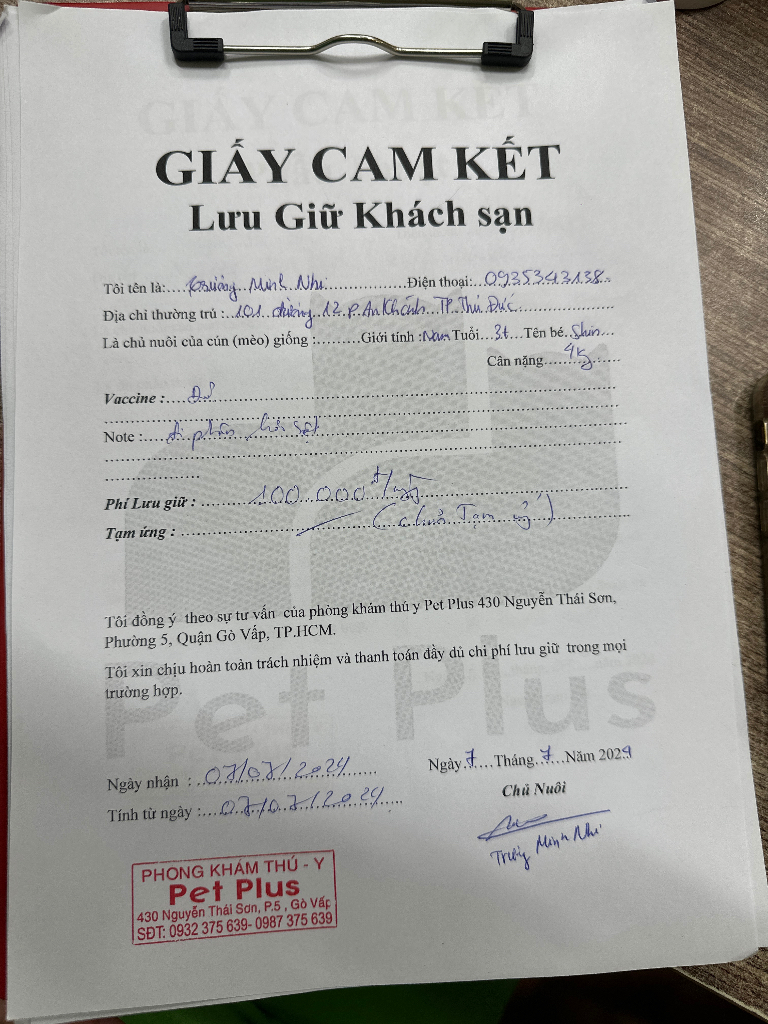 GIẤY CAM KẾT
Lưu Giữ Khách sạn
Tôi tên là:.... Trương Minh Nhi ..................Điện thoại:..0935343138..
Địa chỉ thường trú :..101 đường 12 P. An Khánh TP. Thủ Đức..................
Là chủ nuôi của cún (mèo) giống :.........Giới tính :Nam Tuổi ..3t...Tên bé. Shin......
Cân nặng....4kg......
Vaccine :....
Note :.....đi phân hơi sệt
Phí Lưu giữ : ..........100.000đ/
Tạm ứng : .......... (chưa Tạm ứng)
Tôi đồng ý theo sự tư vấn của phòng khám thú y Pet Plus 430 Nguyễn Thái Sơn,
Phường 5, Quận Gò Vấp, TP.HCM.
Tôi xin chịu hoàn toàn trách nhiệm và thanh toán đầy dủ chi phí lưu giữ trong mọi
trường hợp.
Pet Plus
Ngày.7...Tháng.7...Năm 2024
Ngày nhận : ..07/07/2024.......
Chủ Nuôi
Tính từ ngày :...07/07/2024....
Trương Minh Nhi
PHÒNG KHÁM THÚ - Y
Pet Plus
430 Nguyễn Thái Sơn, P.5 , Gò Vấp
SĐT: 0932 375 639- 0987 375 639